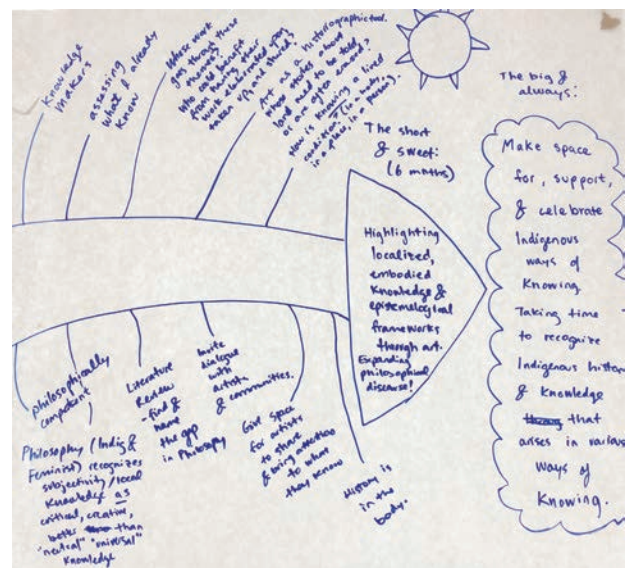 Knowledge
Makers
assessing
what I already
know
Whose work
goes through these
Who could benefit
from having their
work
taken up and shared?
Art as a historiographic tool.
whose stories about
land need to be told
or are often erased?
How is knowing a lived
condition? (in a body,
in a place, in a person).
The short
& sweet:
(6 months)
Highlighting
localized,
embodied
knowledge &
epistemological
frameworks
through art.
Expanding
philosophical
discourse!
The big &
always:
Make space
for, support,
& celebrate
Indigenous
ways of
Knowing.
Taking time
to recognize
Indigenous histories
& knowledge
that
arises in various
ways of
Knowing.
philosophically
competent
Philosophy (Indig &
Feminist) recognizes
subjectivity/local
knowledge as
critical, creative,
better than
"neutral" "universal"
knowledge
Literature
Review
- find &
name
the gap
in Philosophy
Invite
dialogue
with
artists
& communities.
Give space
for artists
to share
& bring attention
to what
they know
History is
in the
body.